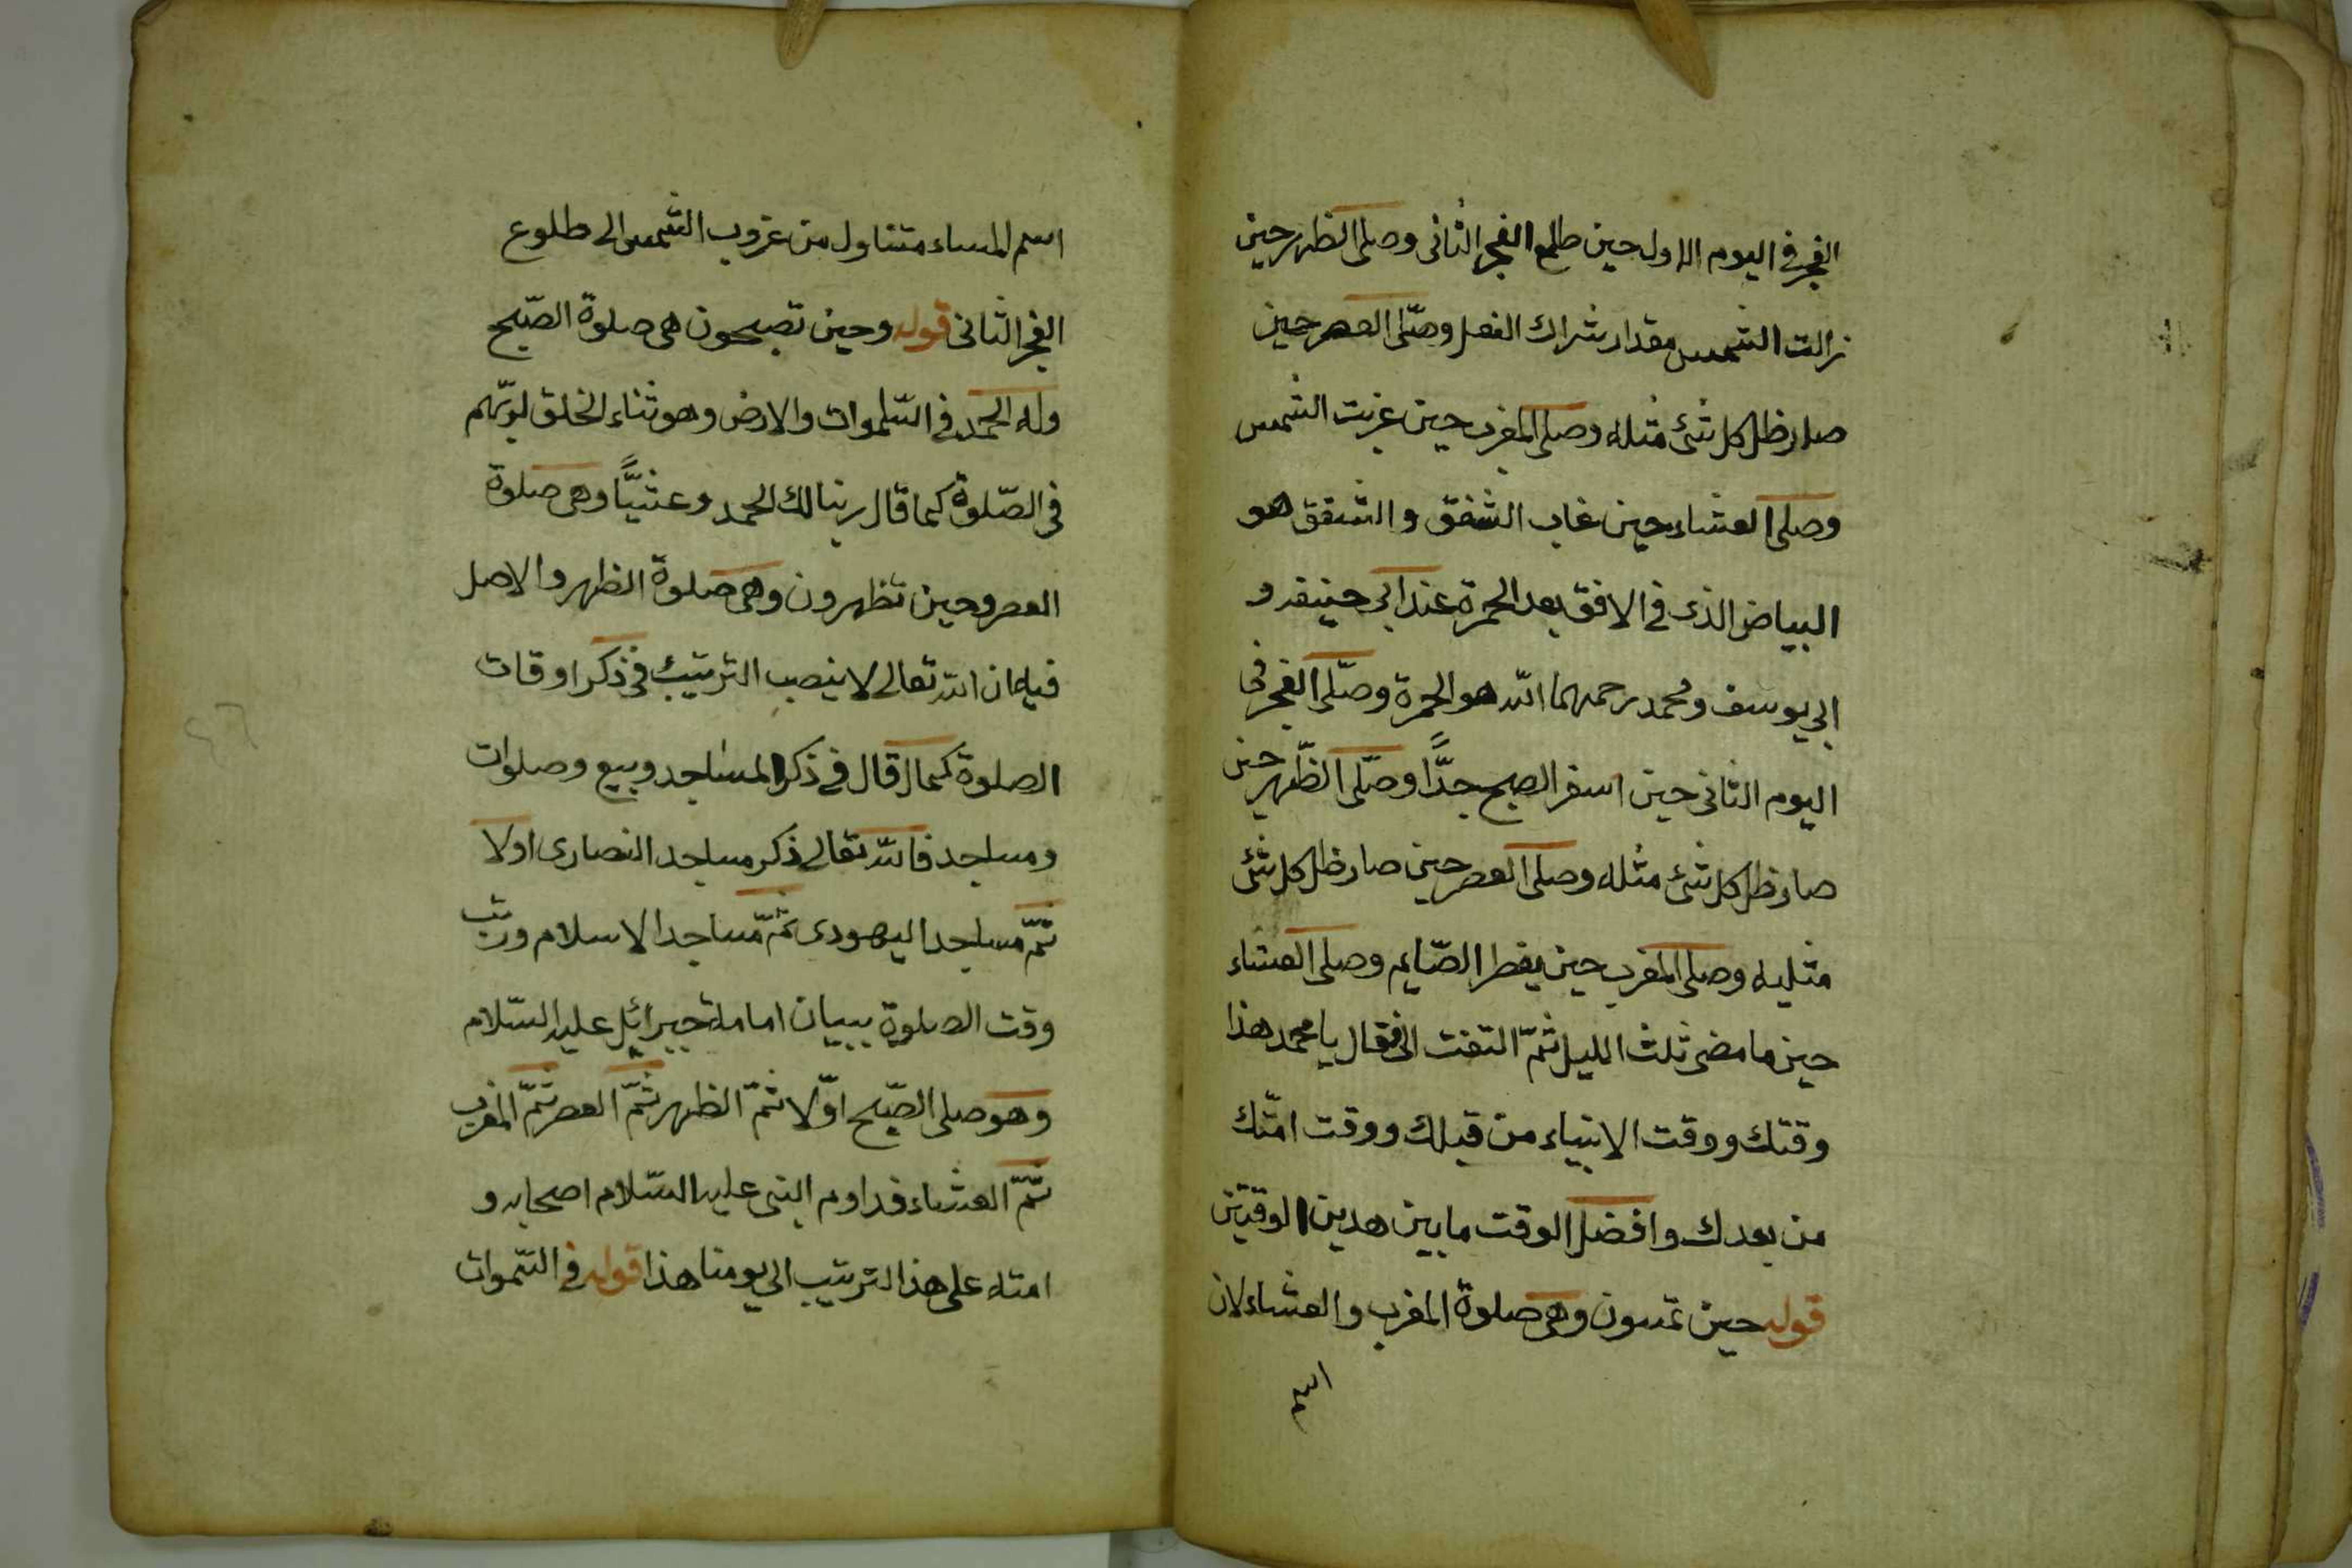 الفجر في اليوم الاول حين طلع الفجر الثانى وصلى الظهر حين
زالت الشمس مقدار شراك النعل وصلّى العصر حين
صار ظل كل شئ مثله وصلى المغرب حين غربت الشمس
وصلى العشاء حين غاب الشفق والشفق هو
البياض الذى في الافق بعد الحمرة عند ابى حنيفه و
ابى يوسف ومحمد رحمهما الله هو الحمرة وصلّى الفجر فى
اليوم الثانى حين اسفر الصبح جدًّا وصلّى الظّهر حين
صار ظل كل شئ مثله وصلى العصر حين صار ظل كل شئ
مثليه وصلى المغرب حين يفطر الصّايم وصلى العشاء
حين ما مضى ثلث الليل ثمّ التفت الى فقال يا محمد هذا
وقتك ووقت الانبياء من قبلك ووقت امّتك
من بعدك وافضل الوقت ما بين هدين الوقتين
قوله حين تمسون وهى صلوة المغرب والعشاء لان
اسم
اسم المساء متناول من غروب الشمس الى طلوع
الفجر الثانى قوله وحين تصبحون هى صلوة الصّبح
وله الحمد في السّموات والارض وهو ثناء الخلق لربّهم
فى الصّلوة كما قال ربنا لك الحمد وعشيًّا وهى صلوة
العصر وحين تظهرون وهى صلوة الظهر والاصل
فيه ان الله تعالى لا ينصب الترتيب فى ذكر اوقات
الصلوة كما قال في ذكر المساجد وبيع وصلوات
ومساجد فالله تعالى ذكر مساجد النصارى اولا
ثمّ مساجد اليهودى ثمّ مساجد الاسلام ورتب
وقت الصلوة ببيان امامة جبرائل عليه السّلام
وهو صلى الصّبح اوّلا ثمّ الظهر ثمّ العصر ثمّ المغرب
ثمّ العشاء فداوم النبى عليه السّلام اصحابه و
امته على هذا الترتيب الى يومنا هذا قوله في السّموات